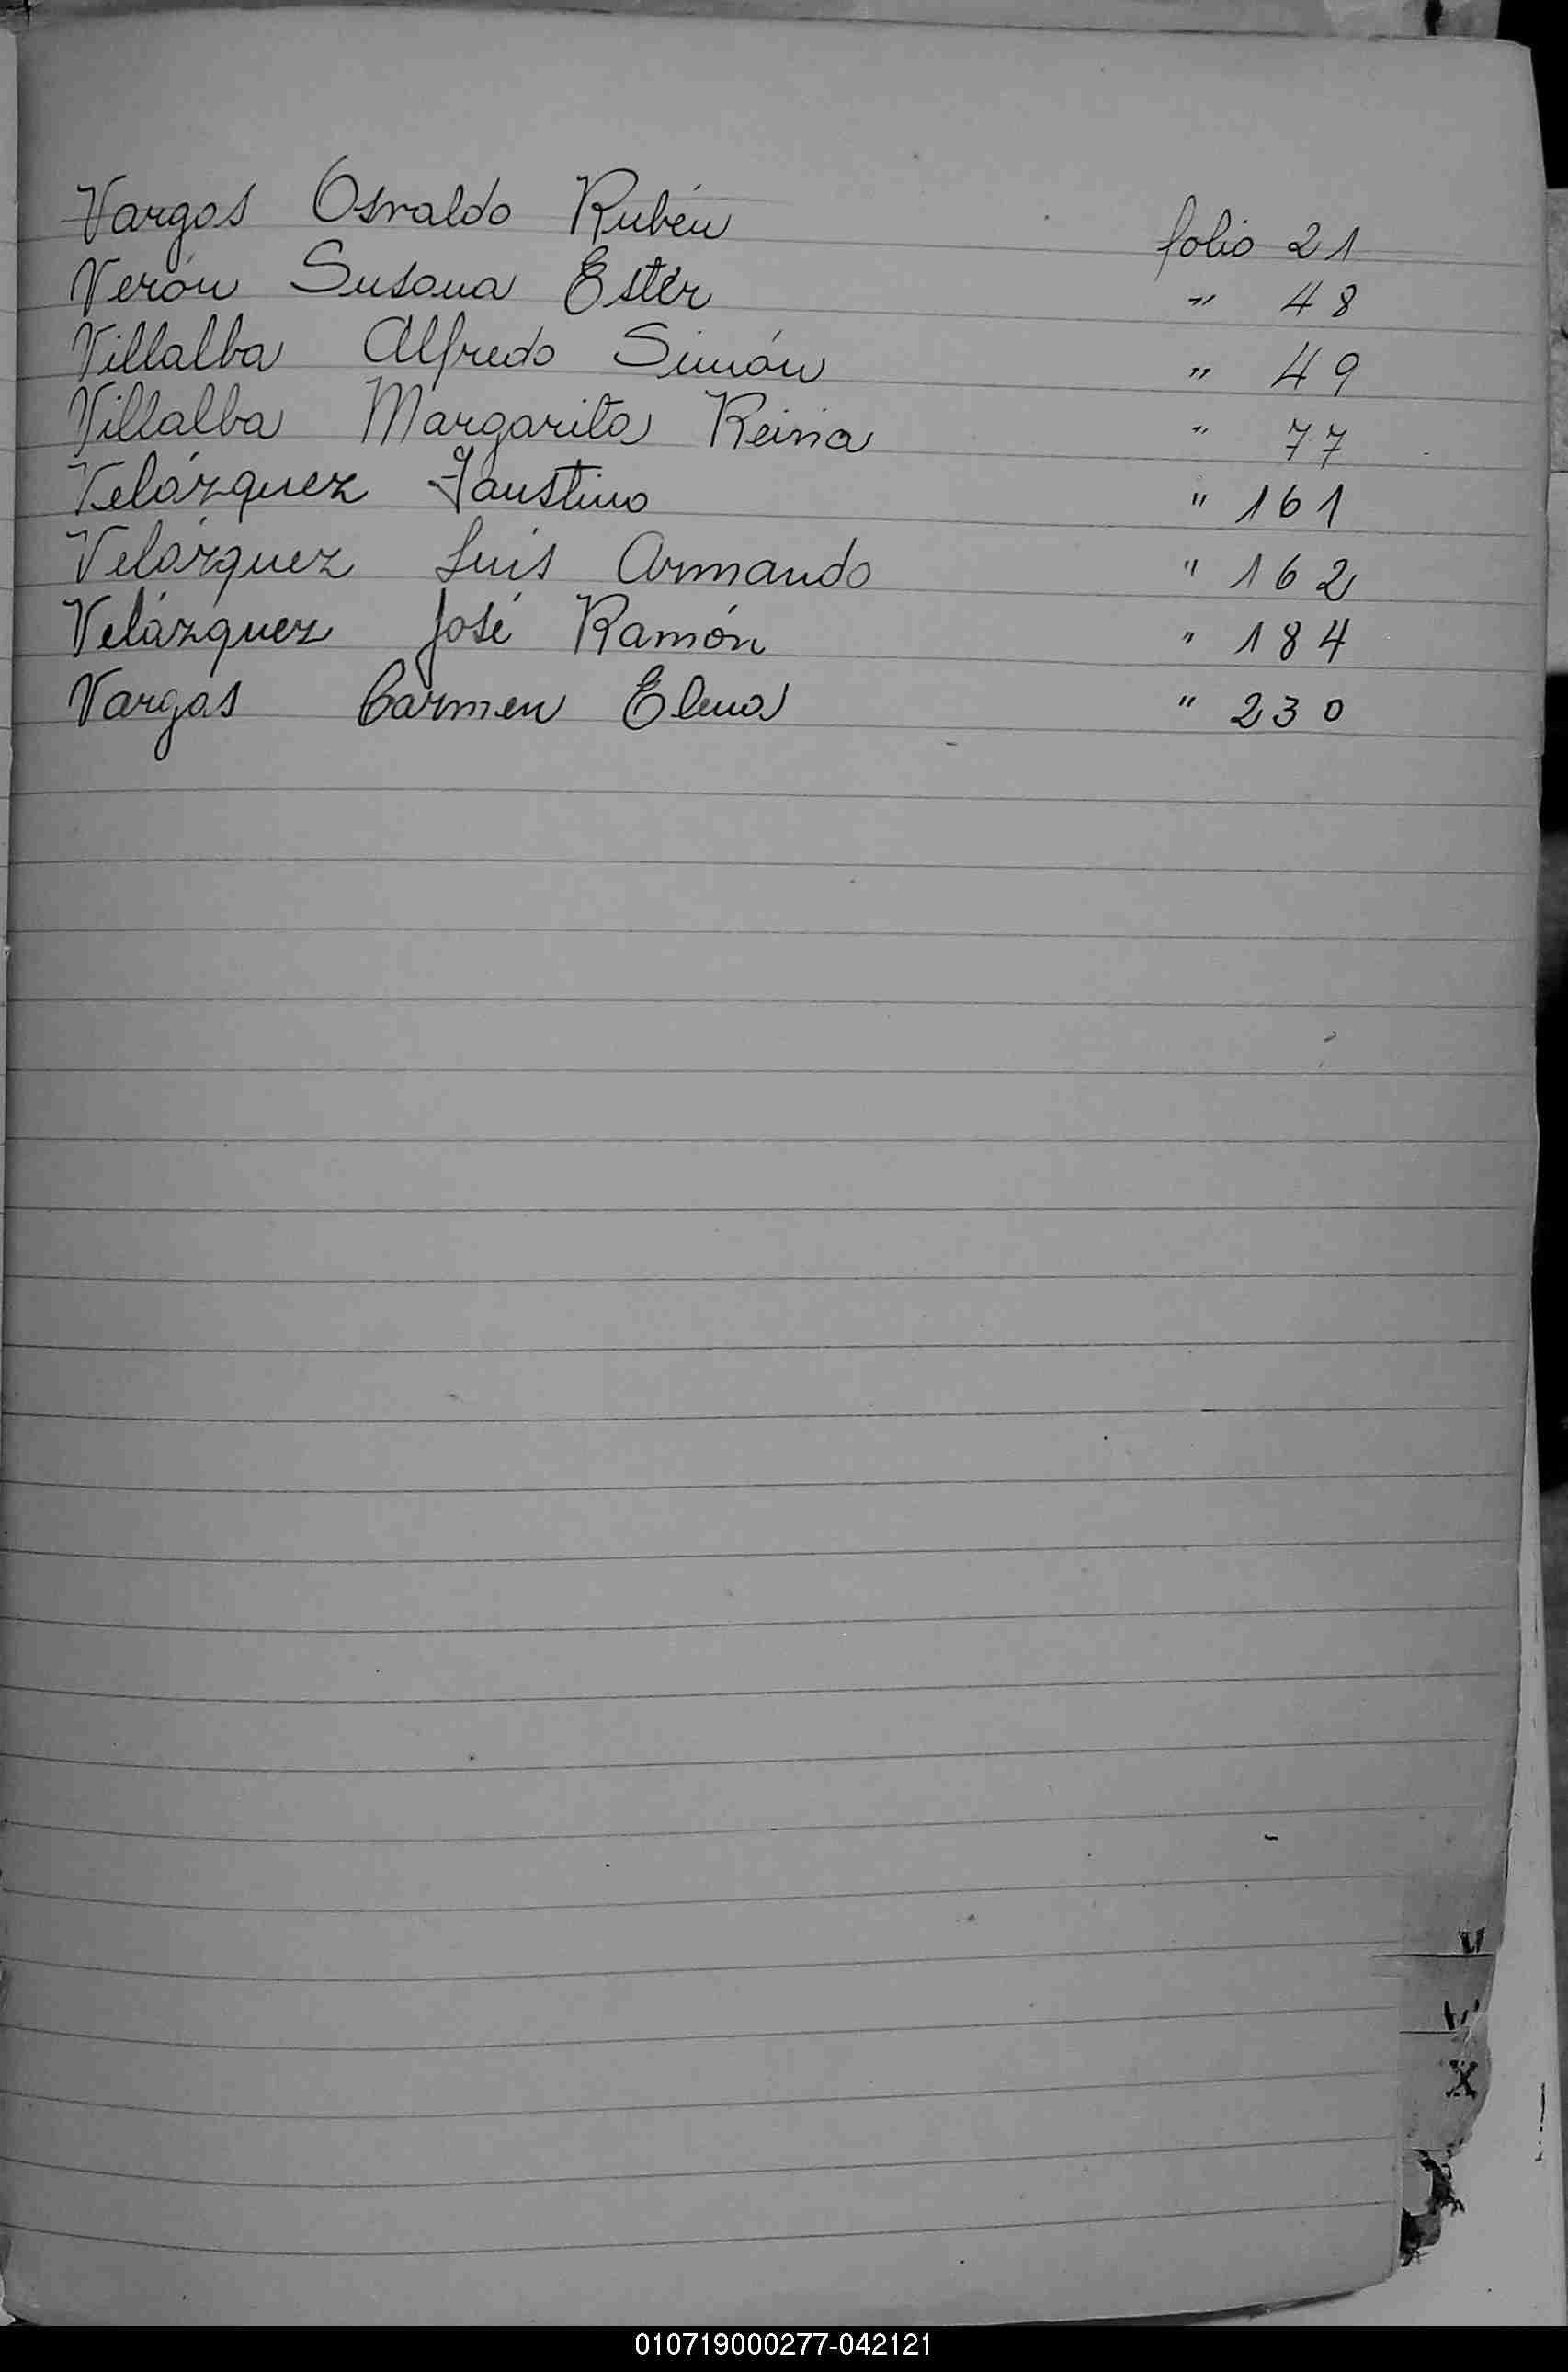 Vargas Osvaldo Rubén folio 21
Verón Susana Ester " 48
Villalba Alfredo Simón " 49
Villalba Margarita Reina " 77
Velázquez Faustino " 161
Velázquez Luis Armando " 162
Velázquez José Ramón " 184
Vargas Carmen Elena " 230
V
W
X
010719000277-042121